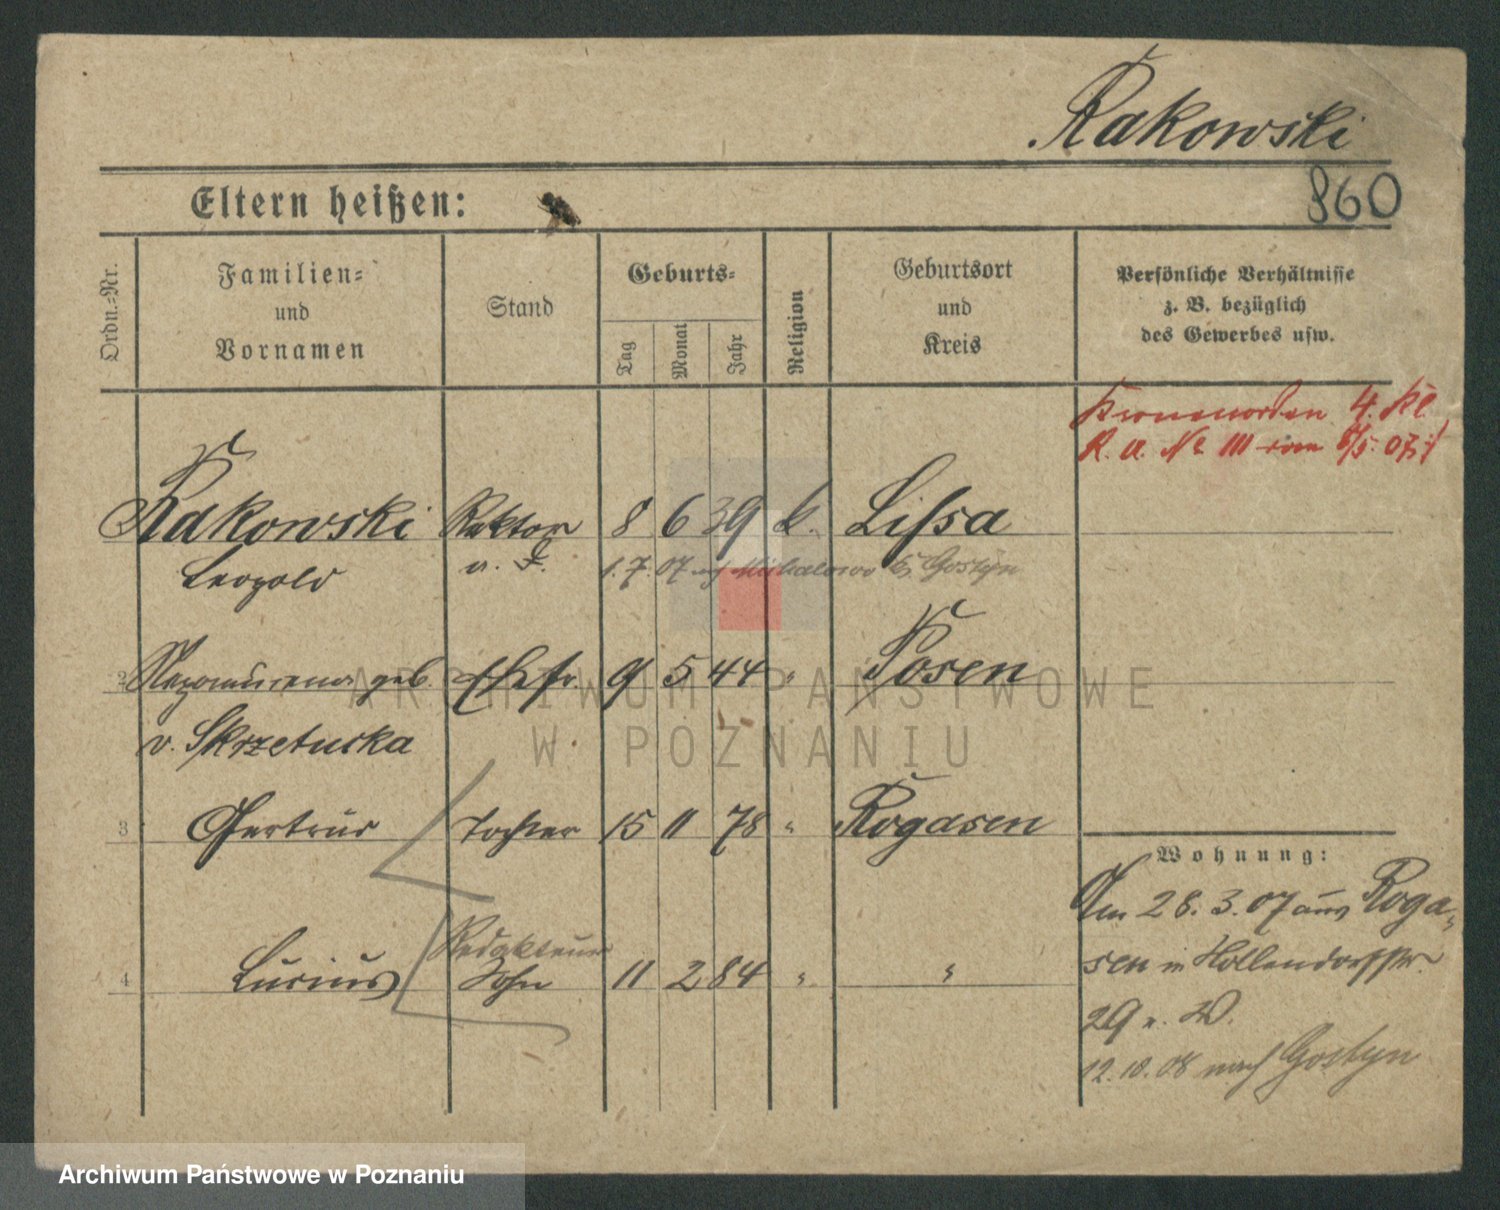 Rakowski
860
Eltern heißen:
Ordn.-Nr.
Familien-
und
Vornamen
Stand
Geburts-
Tag
Monat
Jahr
Religion
Geburtsort
und
Kreis
Persönliche Verhältnisse
z. B. bezüglich
des Gewerbes usw.
Kronenorden 4. Kl.
R. A. No III vom 6/5. 07.
Rakowski Rektor 8 6 39 k. Lissa
Leopold a. D. 1.7.07 Michalowo b/ Gostyn
2 Nepomucena geb. Ehefr. 9 5 44 " Posen
v. Skrzetuska
3 Gertrud Tochter 15 11 78 " Rogasen
Wohnung:
Am 28.3.07 aus Roga-
Redakteur
4 Lucius Sohn 11 2 84 " "
sen in Hollendorffstr.
29 z. W.
12.10.08 nach Gostyn
ARCHIWUM PAŃSTWOWE
W POZNANIU
Archiwum Państwowe w Poznaniu